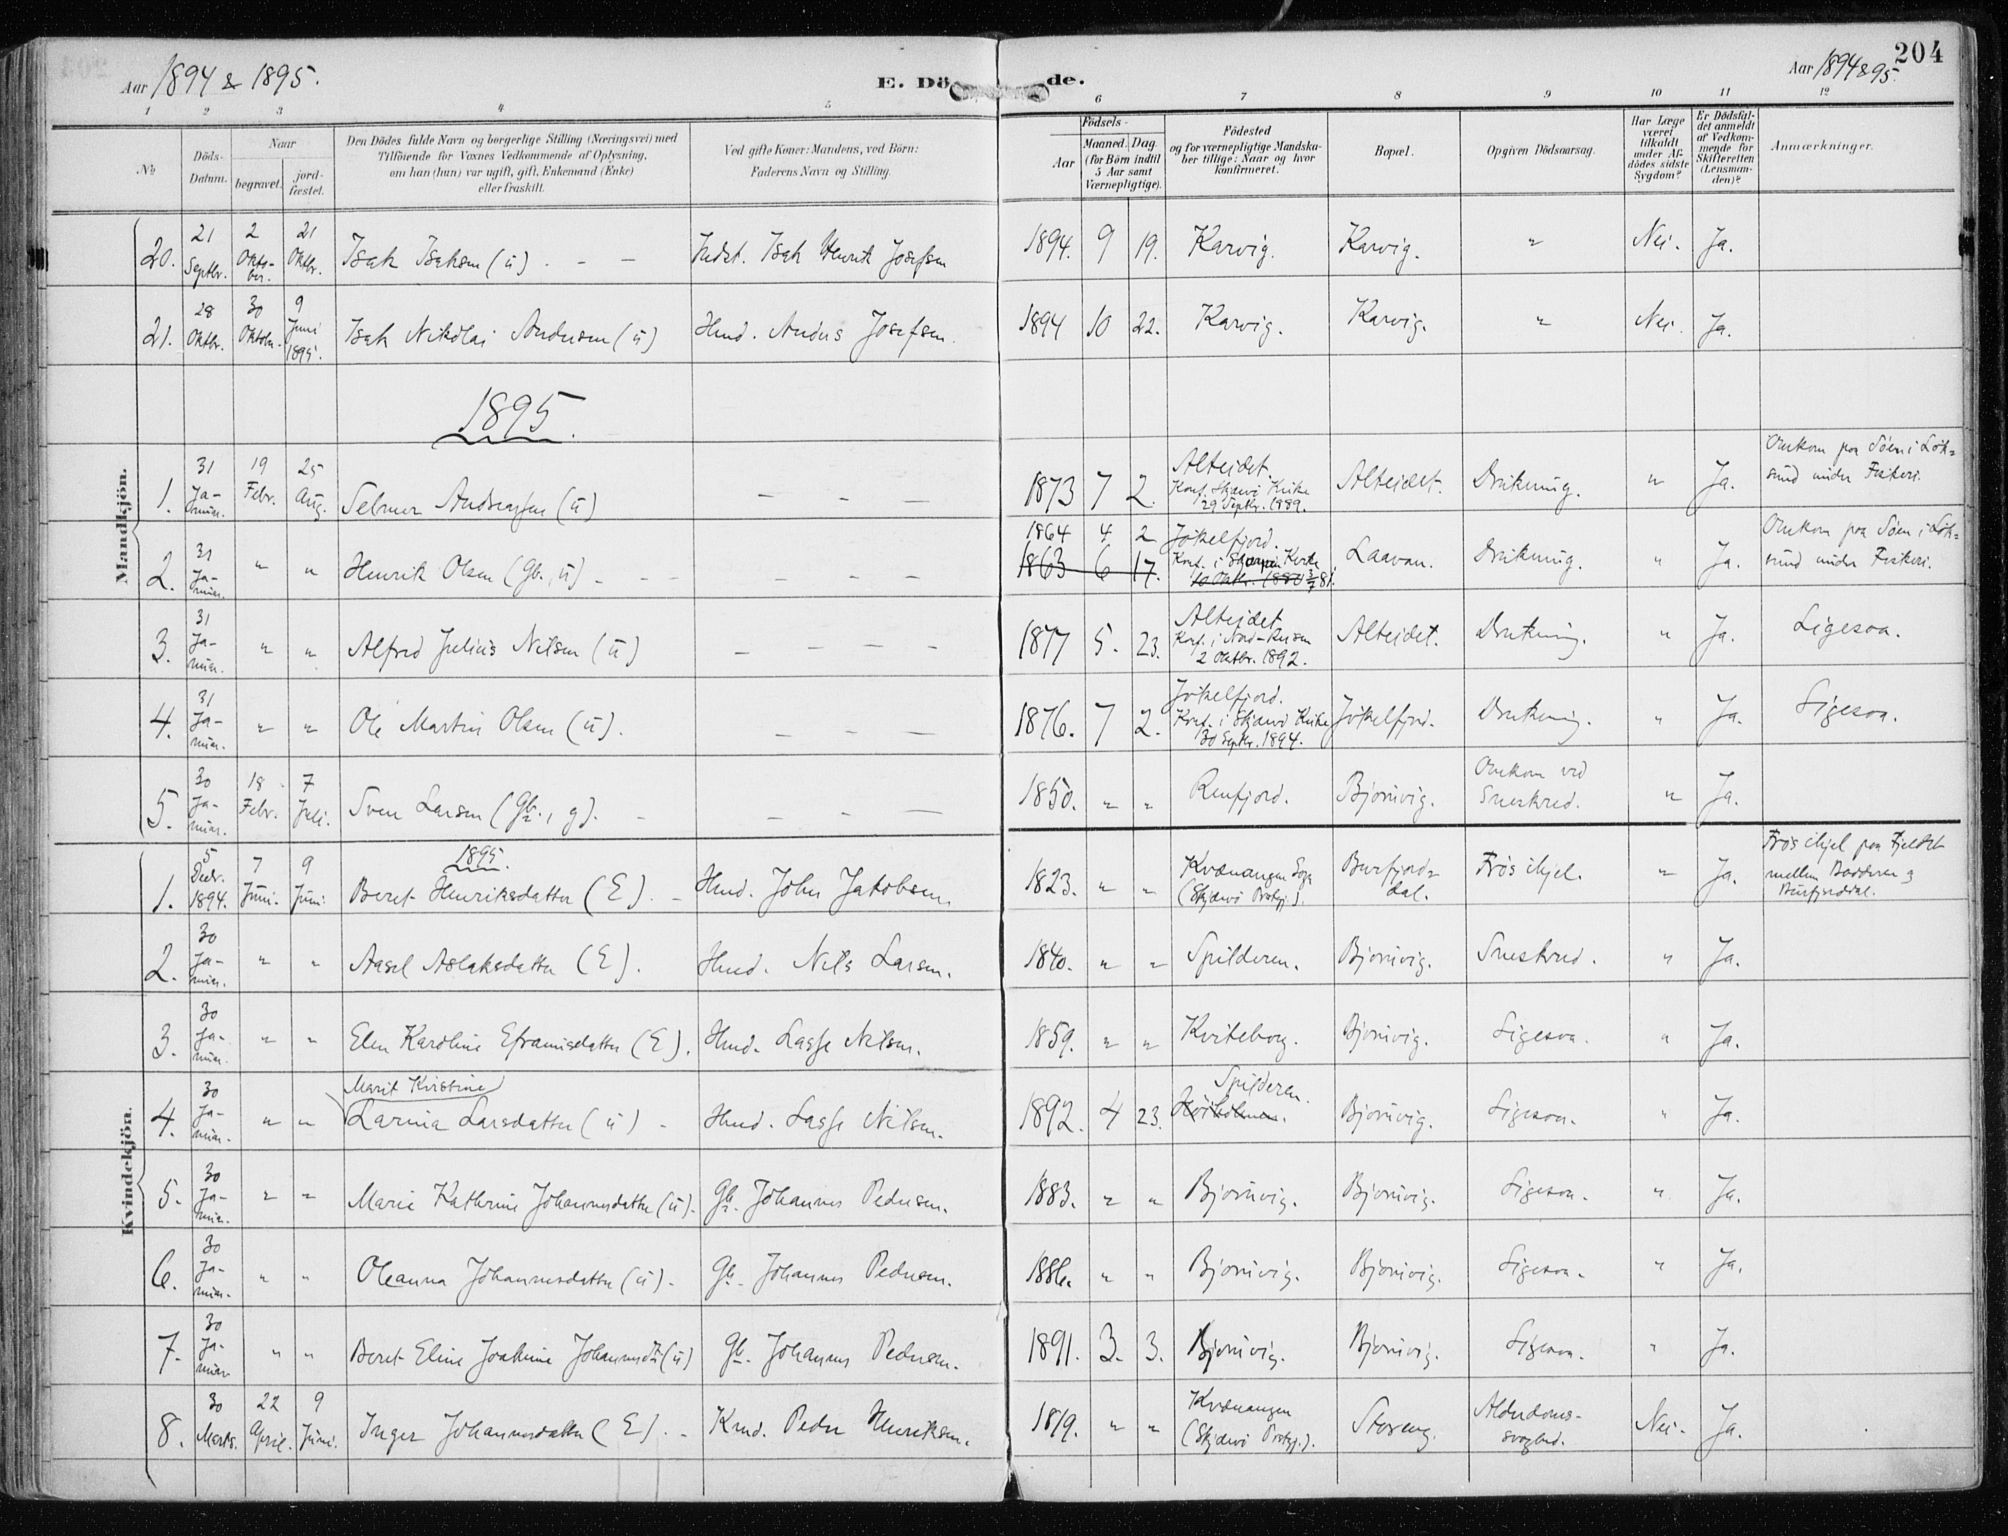 Aar 1894 & 1895.
E. Dö de.
Aar 1894 & 95.
204
1 2 3 4 5 6 7 8 9 10 11 12
No
Döds-Datum.
Naar
begravet.
jord-fæstet.
Den Dödes fulde Navn og borgerlige Stilling (Næringsvei) med
Tilföiende for Voxnes Vedkommende af Oplysning,
om han (hun) var ugift, gift, Enkemand (Enke)
eller fraskilt.
Ved gifte Koner: Mandens, ved Börn:
Faderens Navn og Stilling.
Födsels-
Aar
Maaned. Dag.
(for Börn indtil
5 Aar samt
Værnepligtige).
Födested
og for værnepligtige Mandska-
ber tillige: Naar og hvor
konfirmeret.
Bopæl.
Opgiven Dödsaarsag.
Har Læge
været
tilkaldt
under Af-
dödes sidste
Sygdom?
Er Dödsfal-
det anmeldt
af Vedkom-
mende for
Skifteretten
(Lensman-
den)?
Anmærkninger.
Mandkjön.
20. 21 Septbr. 2 Oktober. 21 Oktbr. Isak Isaksen (u) . - - Indst. Isak Henrik Josefsen 1894. 9 19. Karvig. Karvig. " Nei. Ja.
21. 28 Oktbr. 30 Oktober. 9 Juni 1895. Isak Nikolai Andersen (u) Hmd. Anders Josefsen. 1894 10 22. Karvig. Karvig. " Nei. Ja.
1895.
1. 31 Januar. 19 Febr. 25 Aug. Selmer Andreassen (u) - - - 1873 7 2. Alteidet. Konf. Skjærvö Kirke 29 Septbr. 1889. Alteidet. Drukning. " Ja. Omkom paa Söen i Löksund under Fiskeri.
2. 31 Januar. " " Henrik Olsen (Gb., u) - - - 1864 4 2 1863 6 17. Jökelfjord. Konf. i Skjærvö Kirke Laavan. Drukning. " Ja. Omkom paa Söen i Löksund under Fiskeri.
3. 31 Januar. " " Alfred Julius Nilsen (u) - - - - 1877 5. 23. Alteidet Konf. i Nord-Reisen 2 Oktbr. 1892. Alteidet. Drukning. " Ja. Ligesaa.
4. 31 Januar. " " Ole Martin Olsen (u). - - - 1876. 7 2. Jökelfjord. Konf. i Skjærvö Kirke 30 Septbr. 1894. Jökelfjord. Drukning. " Ja. Ligesaa.
5. 30 Januar. 18 Febr. 7 Juli. Sven Larsen (Gbr., g). - - - 1850. " " Renfjord. Bjørnvig. Omkom ved Sneskred. " Ja.
Kvindekjön.
1895.
1. 5 Decbr. 1894. 7 Juni. 9 Juni. Beret Henriksdatter (E). - Hmd. John Jakobsen. 1823. " " Kvænangen Sogn (Skjærvö Prstgj.). Burfjorddal. Frös ihjel. " Ja. Frös ihjel paa Fjeldet mellem Badderen og Burfjorddal.
2. 30 Januar. " " Aasel Aslaksdatter (E). Hmd. Nils Larsen. 1840. " " Spilderen. Bjørnvig. Sneskred. " Ja.
3. 30 Januar. " " Elen Karoline Eframsdatter (E). Hmd. Lasse Nilsen. 1859. " " Kviteborg. Bjørnvig. Ligesaa. " Ja.
4. 30 Januar. " " Marit Kristine Larina Larsdatter (u) - Hmd. Lasse Nilsen. 1892. 4 23. Spilderen. Bjørnvig. Ligesaa. " Ja.
5. 30 Januar. " " Marie Kathrine Johannesdatter (u). Gbr. Johannes Pedersen. 1883. " " Bjørnvig. Bjørnvig. Ligesaa. " Ja.
6. 30 Januar. " " Oleanna Johannesdatter (u). Gb. Johannes Pedersen. 1886. " " Bjørnvig. Bjørnvig. Ligesaa. " Ja.
7. 30 Januar " " Beret Eline Joakime Johannesdtr (u) Gb. Johannes Pedersen. 1891. 3. 3. Bjørnvig. Bjørnvig. Ligesaa. " Ja.
8. 30 Marts. 22 April. 9 Juni. Inger Johannesdatter (E). - Kmd. Peder Henriksen. 1819. " " Kvænangen (Skjærvö Prstgj.). Storeng. Alderdomssvaghed. Nei. Ja.